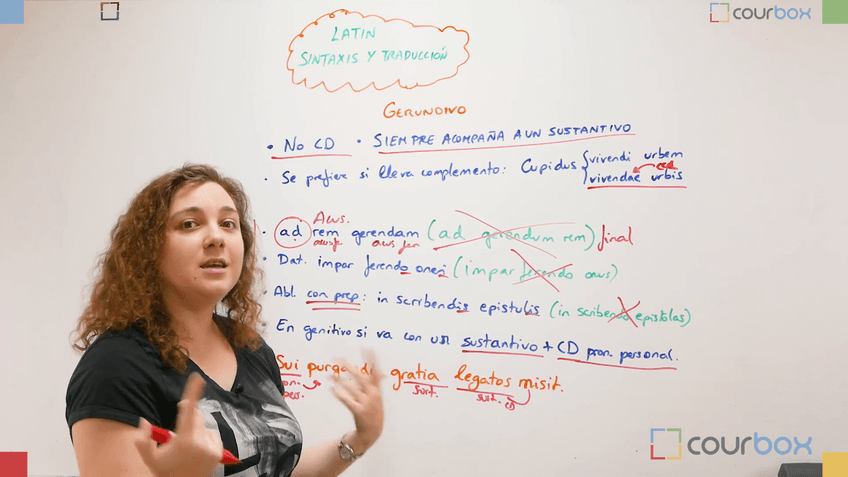 courbox
LATIN
SINTAXIS Y TRADUCCIÓN
GERUNDIVO
• No CD • SIEMPRE ACOMPAÑA A UN SUSTANTIVO
• Se prefiere si lleva complemento: Cupidus { vivendi urbem
vivendae urbis
Acus.
• ad rem gerendam (ad gerendum rem) final
acus fem
• Dat. impar ferendo oneri (impar ferendo onus)
• Abl. con prep: in scribendis epistulis (in scribendo epistolas)
• En genitivo si va con un sustantivo + CD pron. personal.
Sui gratia legatos misit.
pers. sust. sust. CD
courbox